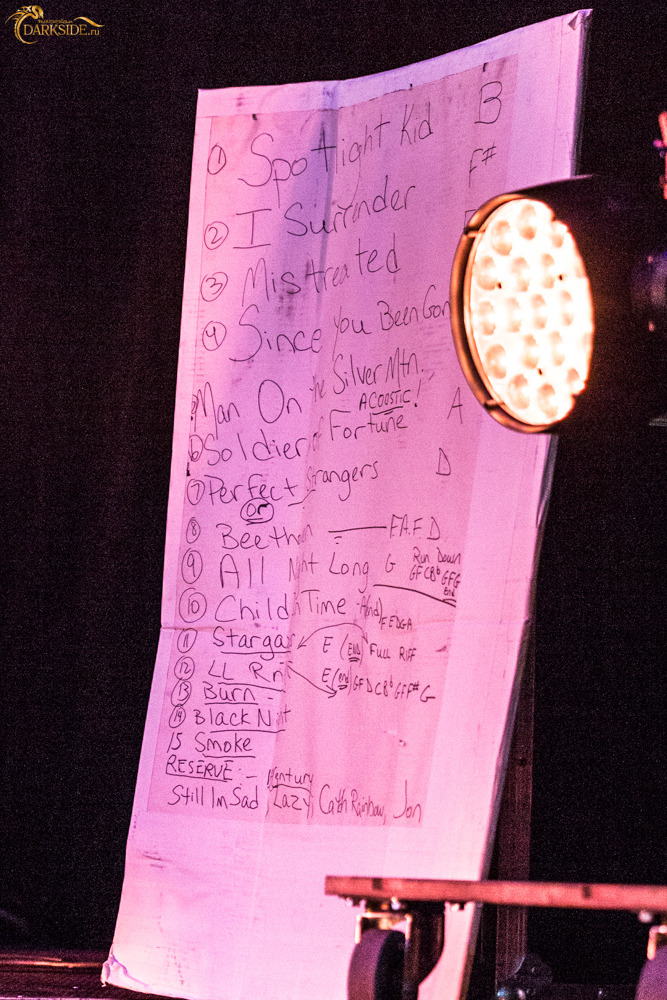 DARKSIDE.ru
① Spotlight Kid B
② I Surrender F#
③ Mistreated
④ Since You Been Gon
Man On the Silver Mtn.
ACOUSTIC!
⑥ Soldier of Fortune A
⑦ Perfect Strangers D
or
⑧ Beethon FA.F.D
⑨ All Night Long G Run Down
GFCBbGFG
End
⑩ Child in Time A(nd) F EDGA
⑪ Stargaz E (END) FULL RIFF
⑫ LL Rn E (end) GFDCBbGFF#G
⑬ Burn
⑭ Black Night
15 Smoke
RESERVE:-
Still Im Sad Lazy, Catch Rainbow, Jon